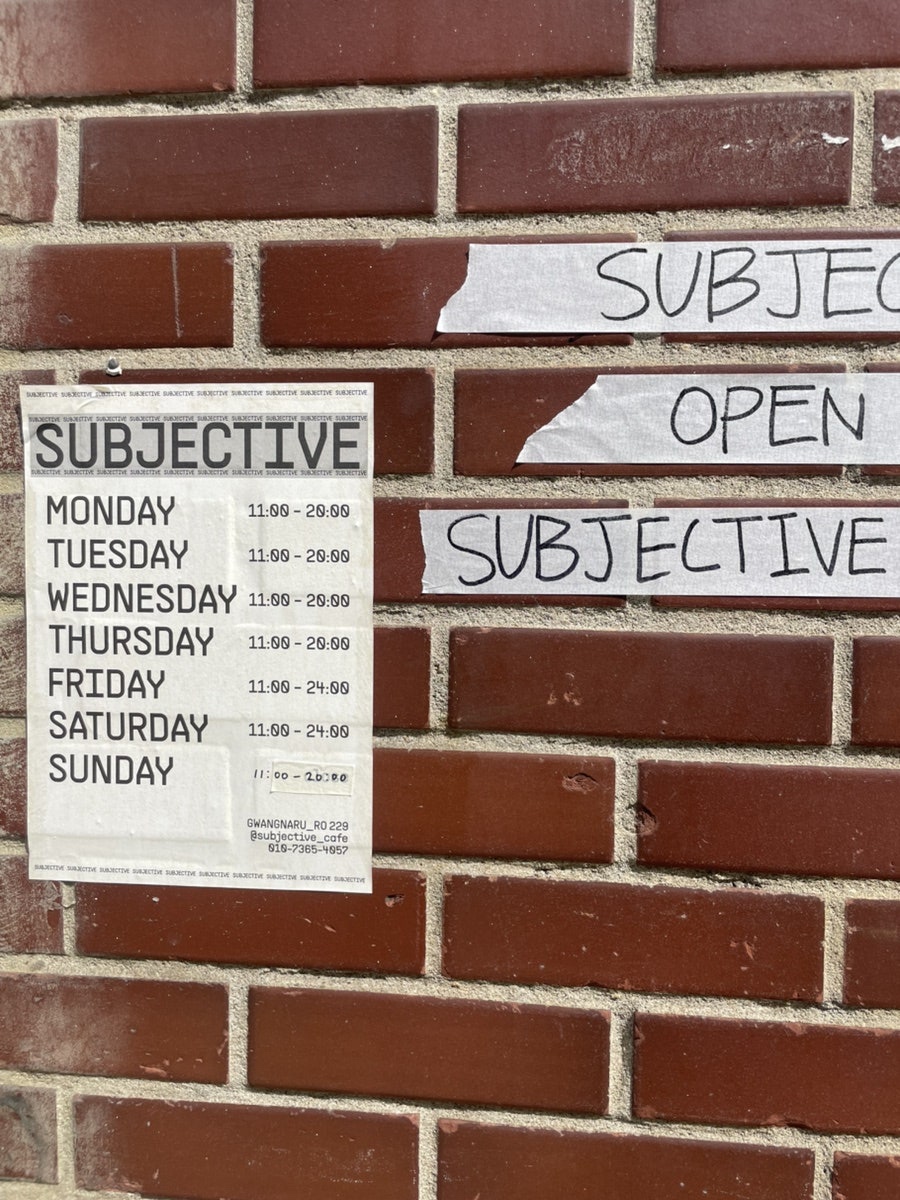 SUBJECTIVE SUBJECTIVE SUBJECTIVE SUBJECTIVE SUBJECTIVE SUBJECTIVE SUBJECTIVE SUBJECTIVE SUBJECTIVE SUBJECTIVE
SUBJECTIVE SUBJECTIVE SUBJECTIVE SUBJECTIVE SUBJECTIVE SUBJECTIVE SUBJECTIVE SUBJECTIVE SUBJECTIVE SUBJECTIVE
SUBJECTIVE
SUBJECTIVE SUBJECTIVE SUBJECTIVE SUBJECTIVE SUBJECTIVE SUBJECTIVE SUBJECTIVE SUBJECTIVE SUBJECTIVE SUBJECTIVE
MONDAY 11:00 - 20:00
TUESDAY 11:00 - 20:00
WEDNESDAY 11:00 - 20:00
THURSDAY 11:00 - 20:00
FRIDAY 11:00 - 24:00
SATURDAY 11:00 - 24:00
SUNDAY 11:00 - 20:00
GWANGNARU_RO 229
@subjective_cafe
010-7365-4057
SUBJECTIVE SUBJECTIVE SUBJECTIVE SUBJECTIVE SUBJECTIVE SUBJECTIVE SUBJECTIVE SUBJECTIVE SUBJECTIVE SUBJECTIVE
SUBJEC
OPEN
SUBJECTIVE